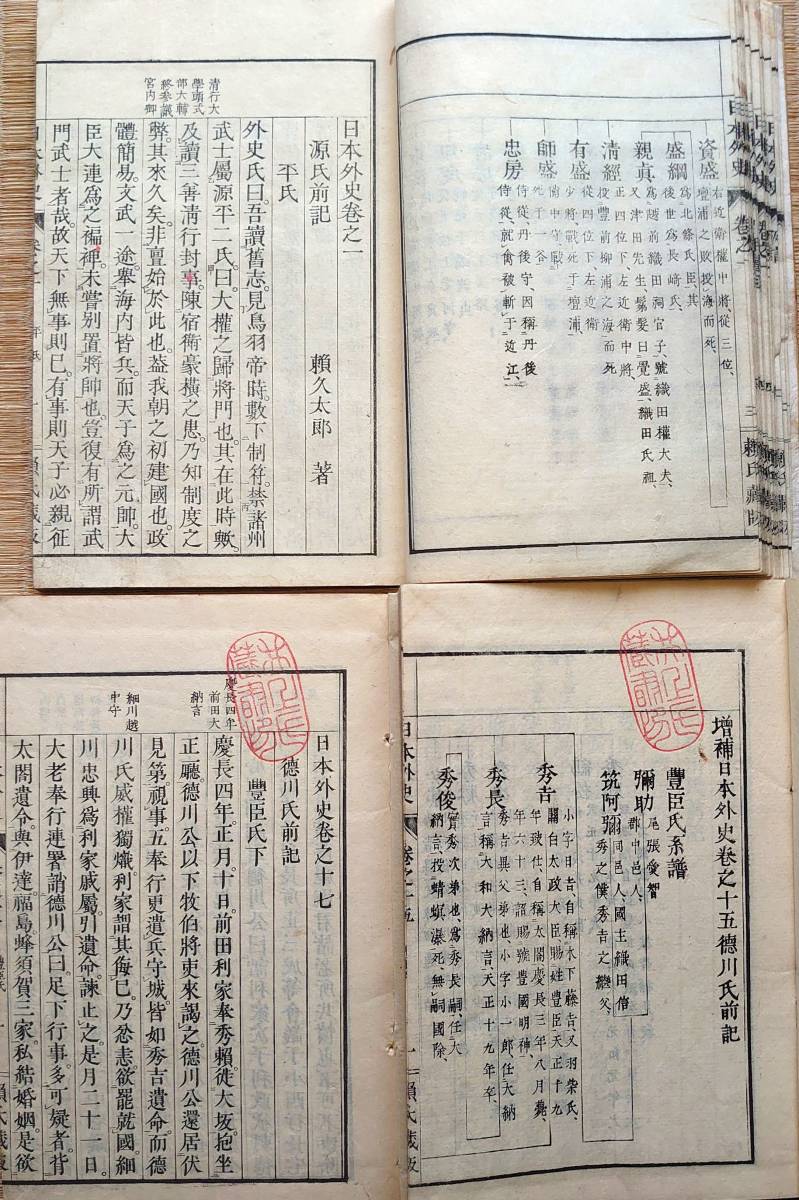 資盛
右近衛權中將、從三位、
壇浦之敗投海而死、
盛綱
爲北條氏臣、其
後世爲長崎氏、
親真
爲越前織田祠官子、號織田權大夫、
又津田先生、鬀髮曰覺盛、織田氏祖、
清經
正四位下、左近衛中將、
投豐前柳浦之海而死
有盛
從四位下、左近衛
少將、戰死于壇浦、
師盛
備中守、戰
死于一谷
忠房
侍從、丹後守、因稱丹後
侍從、就禽被斬于近江、
日本外史
卷之一
三
賴氏藏版
日本外史卷之一
源氏前記
賴久太郎 著
平氏
外史氏曰。吾讀舊志。見鳥羽帝時。數下制符。禁諸州
武士屬源平二氏。曰。大權之歸將門也。其在此時歟。
及讀三善清行封事。陳宿衛豪橫之患。乃知制度之
弊。其來久矣。非亶始於此也。蓋我朝之初建國也。政
體簡易。文武一途。舉海内皆兵。而天子爲之元帥。大
臣大連爲之褊裨。未嘗別置將帥也。豈復有所謂武
門武士者哉。故天下無事則已。有事則天子必親征
清行大
學頭式
部大輔
終參議
宮内卿
日本外史
平氏
賴氏藏版
增補日本外史卷之十五德川氏前記
豐臣氏系譜
彌助
尾張愛智
郡中邑人、
筑阿彌
同邑人、國主織田信
秀之僕秀吉之繼父、
秀吉
小字日吉自稱木下藤吉、又羽柴氏、
關白太政大臣賜姓豐臣天正十九
年致仕、自稱太閤、慶長三年八月薨、
年六十三、謚賜號豐國明神、
秀長
秀吉異父弟也、小字小一郎、任大納
言、稱大和大納言、天正十九年卒、
秀俊
實秀次弟也、爲秀長嗣、任大
納言、投蜻螟瀑死、無嗣國除、
日本外史
卷之十五
一
賴氏藏版
日本外史卷之十七
德川氏前記
豐臣氏下
慶長四年。正月。十日。前田利家奉秀賴。徙大坂。抱坐
正廳。德川公以下牧伯將吏來謁。之德川公還居伏
見第。視事。五奉行更遣兵守城。皆如秀吉遺命。而德
川氏威權獨熾。利家謂其侮已。乃忿恚。欲罷就國。細
川忠興爲利家戚屬。引遺命。諫止之。是月二十一日。
大老奉行連署。謂德川公曰。足下行事。多可疑者。背
太閤遺令。與伊達。福島。蜂須賀三家。私結婚姻。是欲
慶長四年
前田大
納言
細川越
中守
賴氏藏版